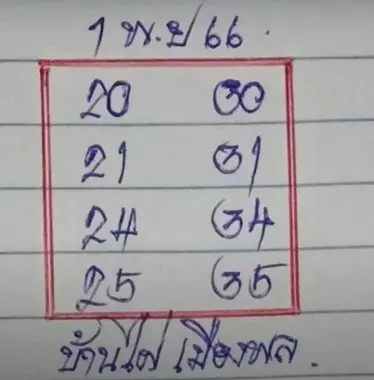 1 พ.ย 66.
20 30
21 31
24 34
25 35
บ้านไผ่ เมืองพล.